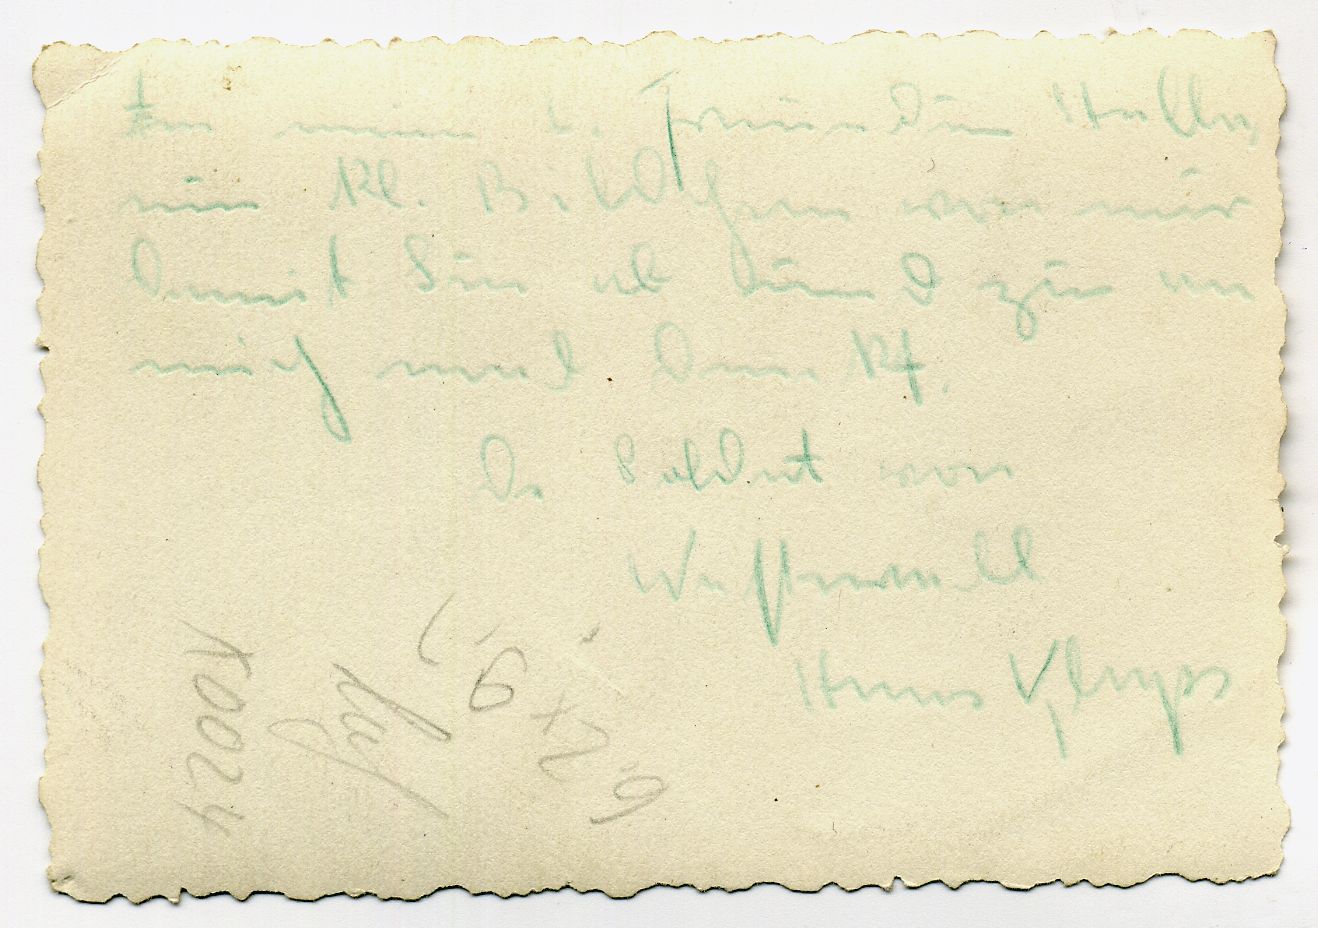 An meine l. Freundin Hella,
ein kl. Bildchen von mir
damit Sie ab und zu an
mich mal den kt.
De Soldat von
Westwall
Hans
K0024